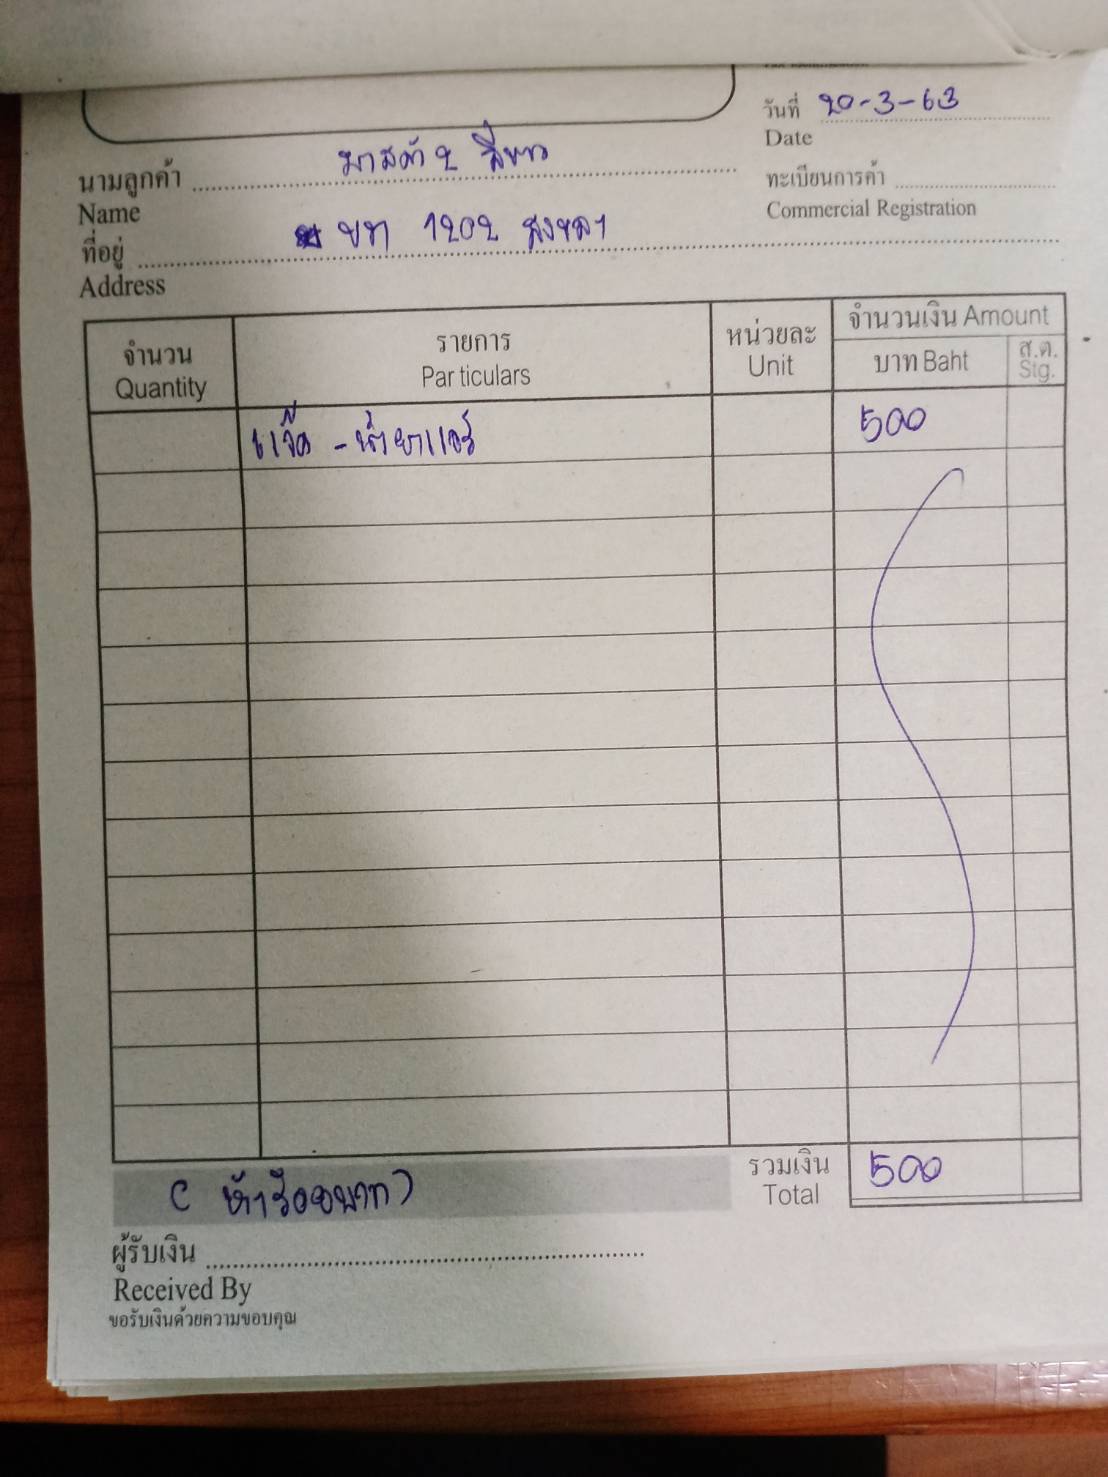 วันที่ 20-3-63
Date
นามลูกค้า มาสด้า 2 สีขาว
Name
ทะเบียนการค้า
Commercial Registration
ที่อยู่ ขก 1202 สงขลา
Address
จำนวน รายการ หน่วยละ จำนวนเงิน Amount
Quantity Particulars Unit บาท Baht ส.ต. Stg.
เช็ค - น้ำยาแอร์ 500
(ห้าร้อยบาท) รวมเงิน 500
Total
ผู้รับเงิน
Received By
ขอรับเงินด้วยความขอบคุณ